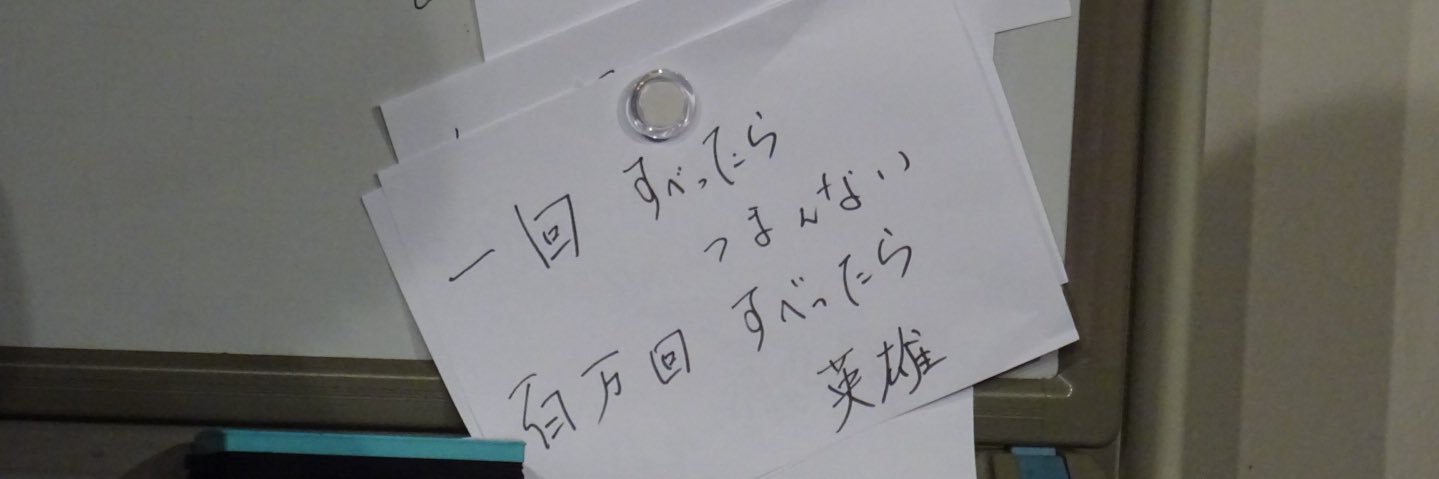 一回 すべったら
つまんない
百万回 すべったら
英雄